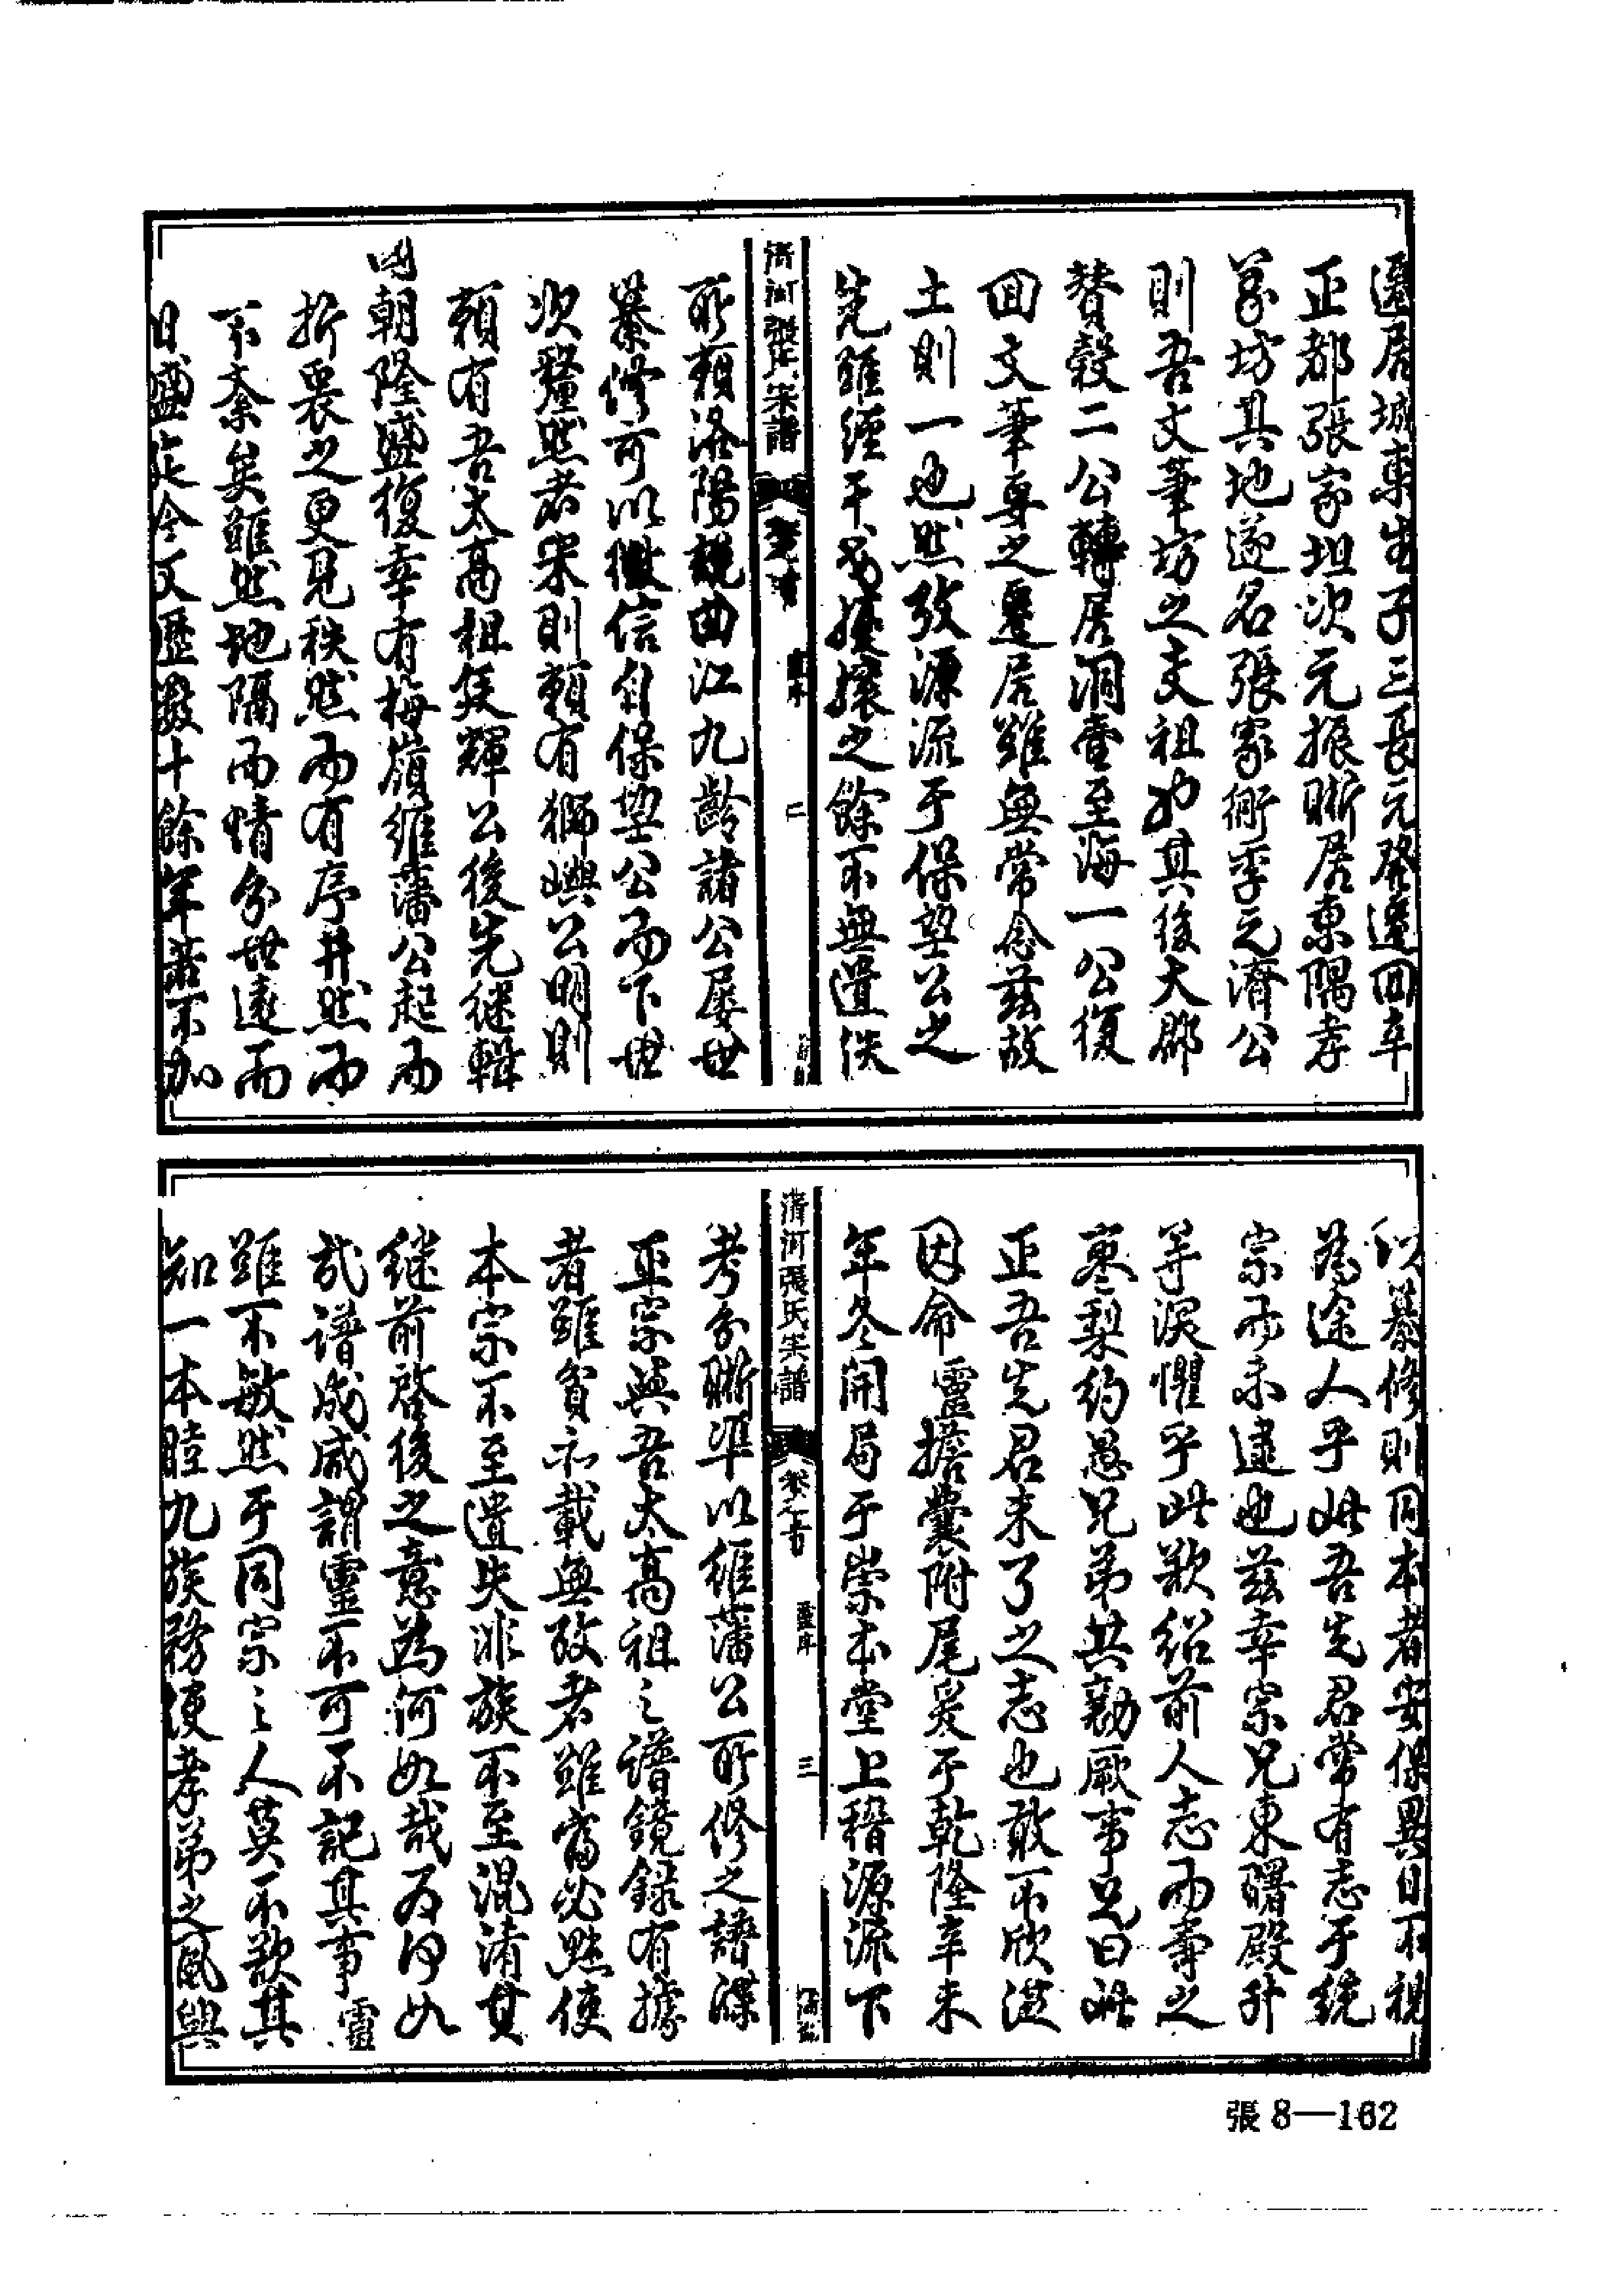 遷居城東生子三長元發遷回車
正都張家坦次元振晰居東隅孝
義坊其地遂名張家衕季元濟公
則吾文筆坊之支祖也其後大郡
贊穀二公轉居洞壹至海一公復
回文筆專之憂居雖無常念茲故
土則一也然攷源流于保望公之
先雖經干戈擾攘之餘不無遺佚
清河張氏宗譜 卷之首 二
所賴洛陽魏曲江九齡諸公屡世
纂修可以徵信自保望公而下世
次釐然者宋則賴有獅嶼公明則
賴有吾太高祖矦輝公後先継輯
國朝隆盛復幸有梅嶺維藩公起而
折衷之更見秩然而有序井然而
不紊矣雖然地隔而情分世遠而
日盛迄今又歷數十餘年若不加
以纂修則同本者安保異日不視
為途人乎此吾先君常有志于統
宗而未逮也茲幸宗兄東曙殿升
等深懼乎此欲紹前人志而壽之
棗梨約愚兄弟共勷厥事兄曰此
正吾先君未了之志也敢不欣從
因命靈擔囊附尾爰于乾隆辛未
年冬開局于崇本堂上稽源流下
清河張氏宗譜 卷之首 靈序 三
考分晰準以維藩公所修之譜牒
正宗與吾太高祖之譜鏡錄有據
者雖貧亦載無攷者雖富必黜使
本宗不至遺失非族不至混淆其
継前啓後之意為何如哉為何如
哉譜成咸謂靈不可不記其事靈
雖不敏然于同宗之人莫不欲其
知一本睦九族務使孝弟之風與
張8—162